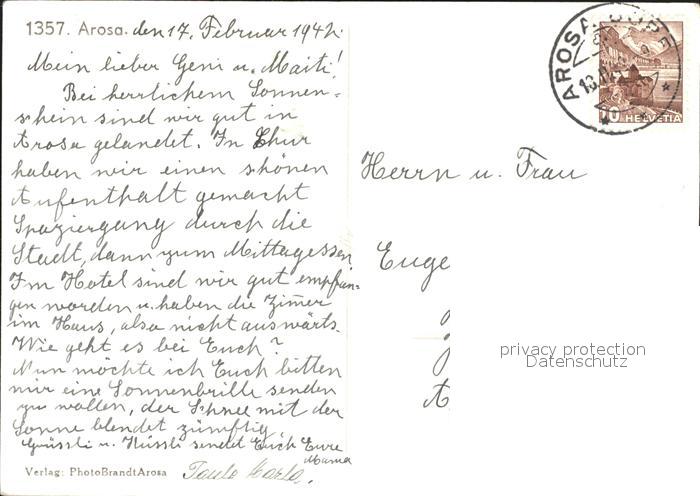 1357. Arosa. den 17. Februar 1942.
Mein lieber Geni u. Maiti!
Bei herrlichem Sonnen-
schein sind wir gut in
Arosa gelandet. In Chur
haben wir einen schönen
Aufenthalt gemacht
Spaziergang durch die
Stadt, dann zum Mittagessen
Im Hotel sind wir gut empfan-
gen worden u. haben die Zimmer
im Haus, also nicht auswärts.
Wie geht es bei Euch?
Nun möchte ich Euch bitten
mir eine Sonnenbrille senden
zu wollen, der Schnee mit der
Sonne blendet zünftig
Grüssli u. Küssli sendet Euch Eure
Mama
Verlag: PhotoBrandtArosa
Tante
Herrn u. Frau
Euge
A
AROSA DORF
HELVETIA
privacy protection
Datenschutz